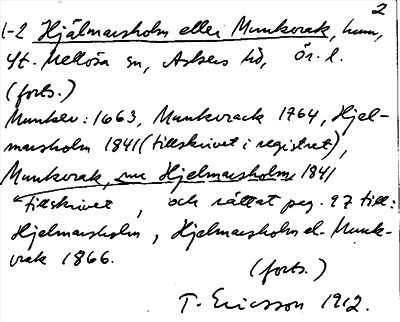 2
1-2 Hjälmarsholm eller Munkvrak, hmn,
St. Mellösa sn, Askers hd, Ör. l.
(forts.)
Munkev: 1663, Munkvrack 1764, Hjel-
marsholm 1841 (tillskrivet i registret),
Munkvrak, nu Hjelmarsholm 1841
tillskrivet, och rättat pag. 27 till:
Hjelmarsholm, Hjelmarsholm el. Munk-
vrak 1866.
(forts.)
T. Ericsson 1912.